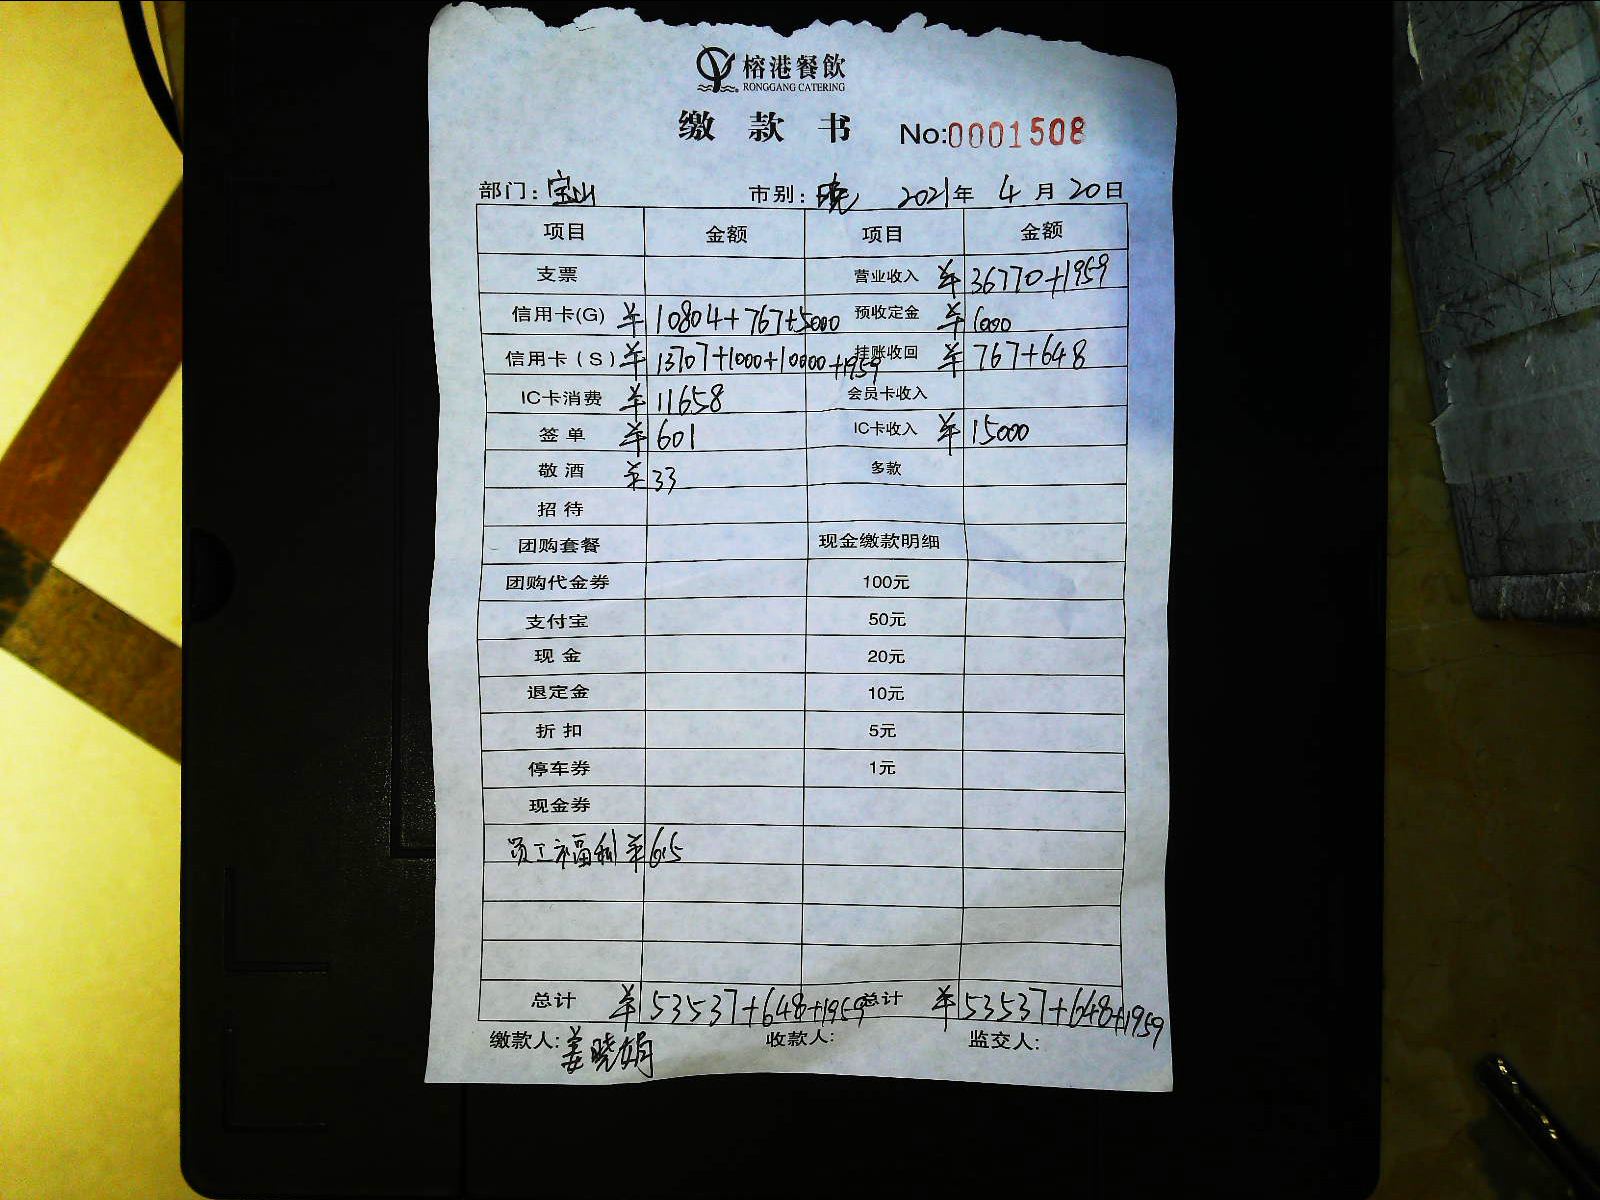 榕港餐飲
RONGGANG CATERING
缴款书 No:0001508
部门:宝山 市别:晚 2021年4月20日
项目 金额 项目 金额
支票 营业收入 ¥36770+1959
信用卡(G) ¥10804+767+5000 预收定金 ¥1000
信用卡(S) ¥13707+1000+10000+1959 挂账收回 ¥767+648
IC卡消费 ¥11658 会员卡收入
签单 ¥601 IC卡收入 ¥15000
敬酒 ¥33 多款
招待
团购套餐 现金缴款明细
团购代金券 100元
支付宝 50元
现金 20元
退定金 10元
折扣 5元
停车券 1元
现金券
员工福利 ¥615
总计 ¥53537+648+1959 总计 ¥53537+648+1959
缴款人:姜晓娟 收款人: 监交人: